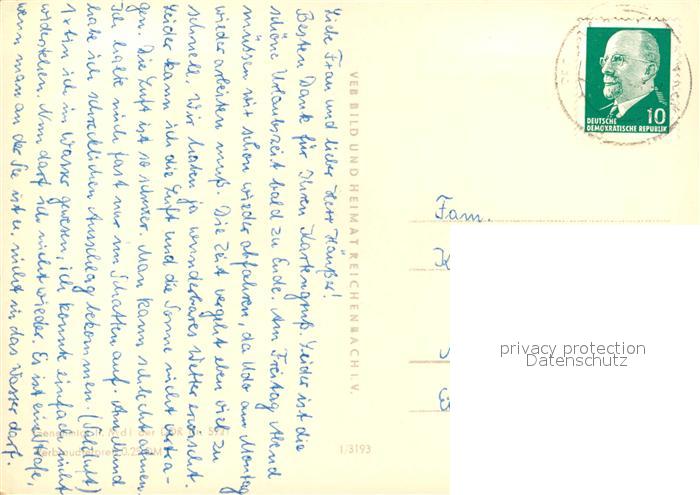 Liebe Frau und lieber Herr Häußer!
Besten Dank für Ihren Kartengruß. Leider ist die
schöne Urlaubszeit bald zu Ende. Am Freitag Abend
müssen wir schon wieder abfahren, da Udo am Montag
wieder arbeiten muß. Die Zeit vergeht eben viel zu
schnell. Wir haben ja wunderbares Wetter erwischt.
Leider kann ich die Luft und die Sonne nicht vertra-
gen. Die Luft ist so schwer. Man kann schlecht atmen.
Ich halte mich fast nur im Schatten auf. Am Mund
habe ich schrecklichen Ausschlag bekommen. (Salzluft)
1x bin ich im Wasser gewesen, ich konnte einfach nicht
widerstehen. Nun darf ich nicht wieder. Es ist eine Strafe,
wenn man an der See ist u. nicht in das Wasser darf.
VEB BILD UND HEIMAT REICHENBACH I. V.
I/3193
10
DEUTSCHE
DEMOKRATISCHE REPUBLIK
Fam.
privacy protection
Datenschutz